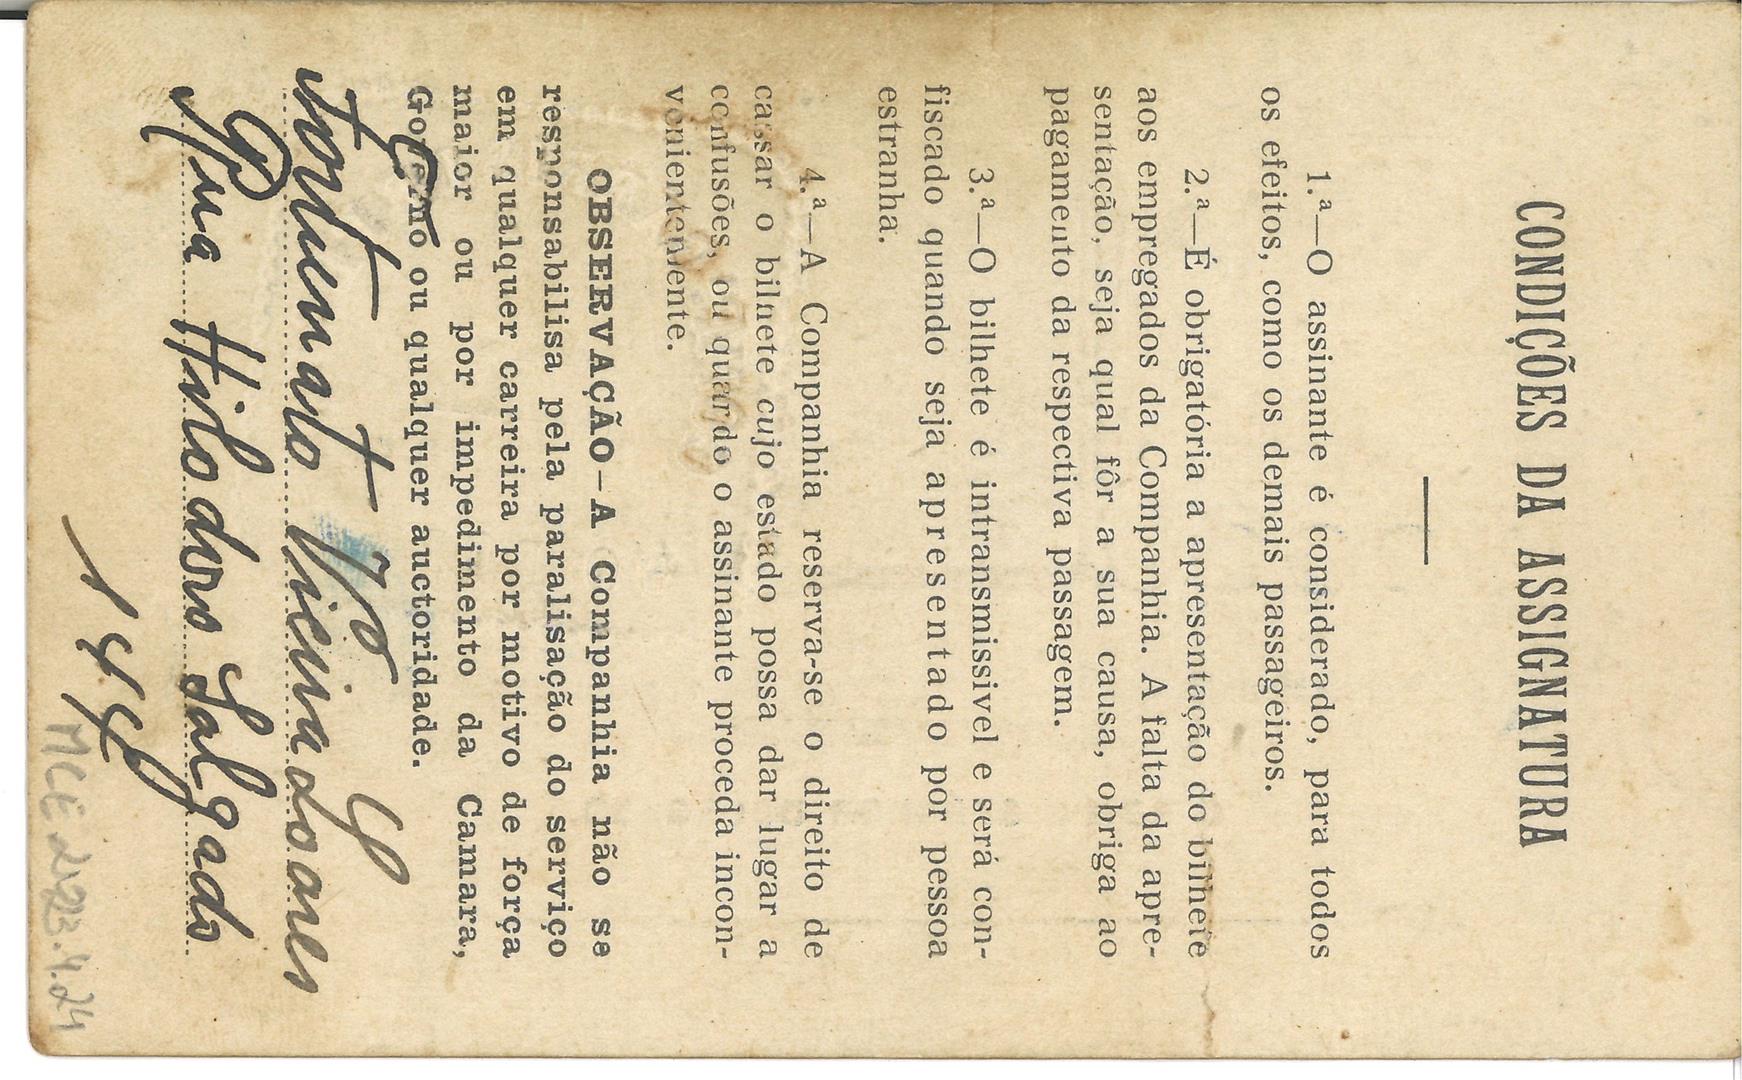 CONDIÇÕES DA ASSIGNATURA
1.ª—O assinante é considerado, para todos
os efeitos, como os demais passageiros.
2.ª—É obrigatória a apresentação do bilhete
aos empregados da Companhia. A falta da apre-
sentação, seja qual fôr a sua causa, obriga ao
pagamento da respectiva passagem.
3.ª—O bilhete é intransmissivel e será con-
fiscado quando seja apresentado por pessoa
estranha.
4.ª—A Companhia reserva-se o direito de
cassar o bilhete cujo estado possa dar lugar a
confusões, ou quando o assinante proceda incon-
venientemente.
OBSERVAÇÃO—A Companhia não se
responsabilisa pela paralisação do serviço
em qualquer carreira por motivo de força
maior ou por impedimento da Camara,
Governo ou qualquer auctoridade.
Fortunato Vieira Soares
Rua Hilodoro Salgado